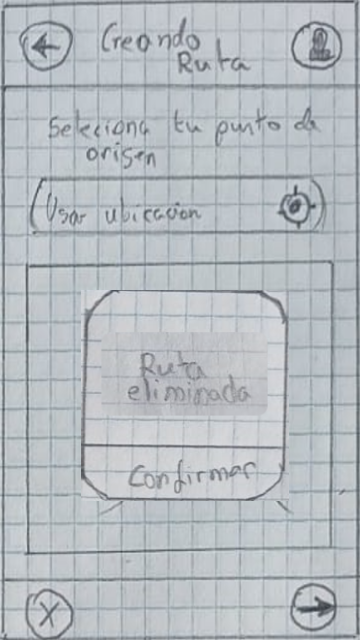 Creando
Ruta
Seleciona tu punto de
origen
Usar ubicacion
Ruta
eliminada
Confirmar
X